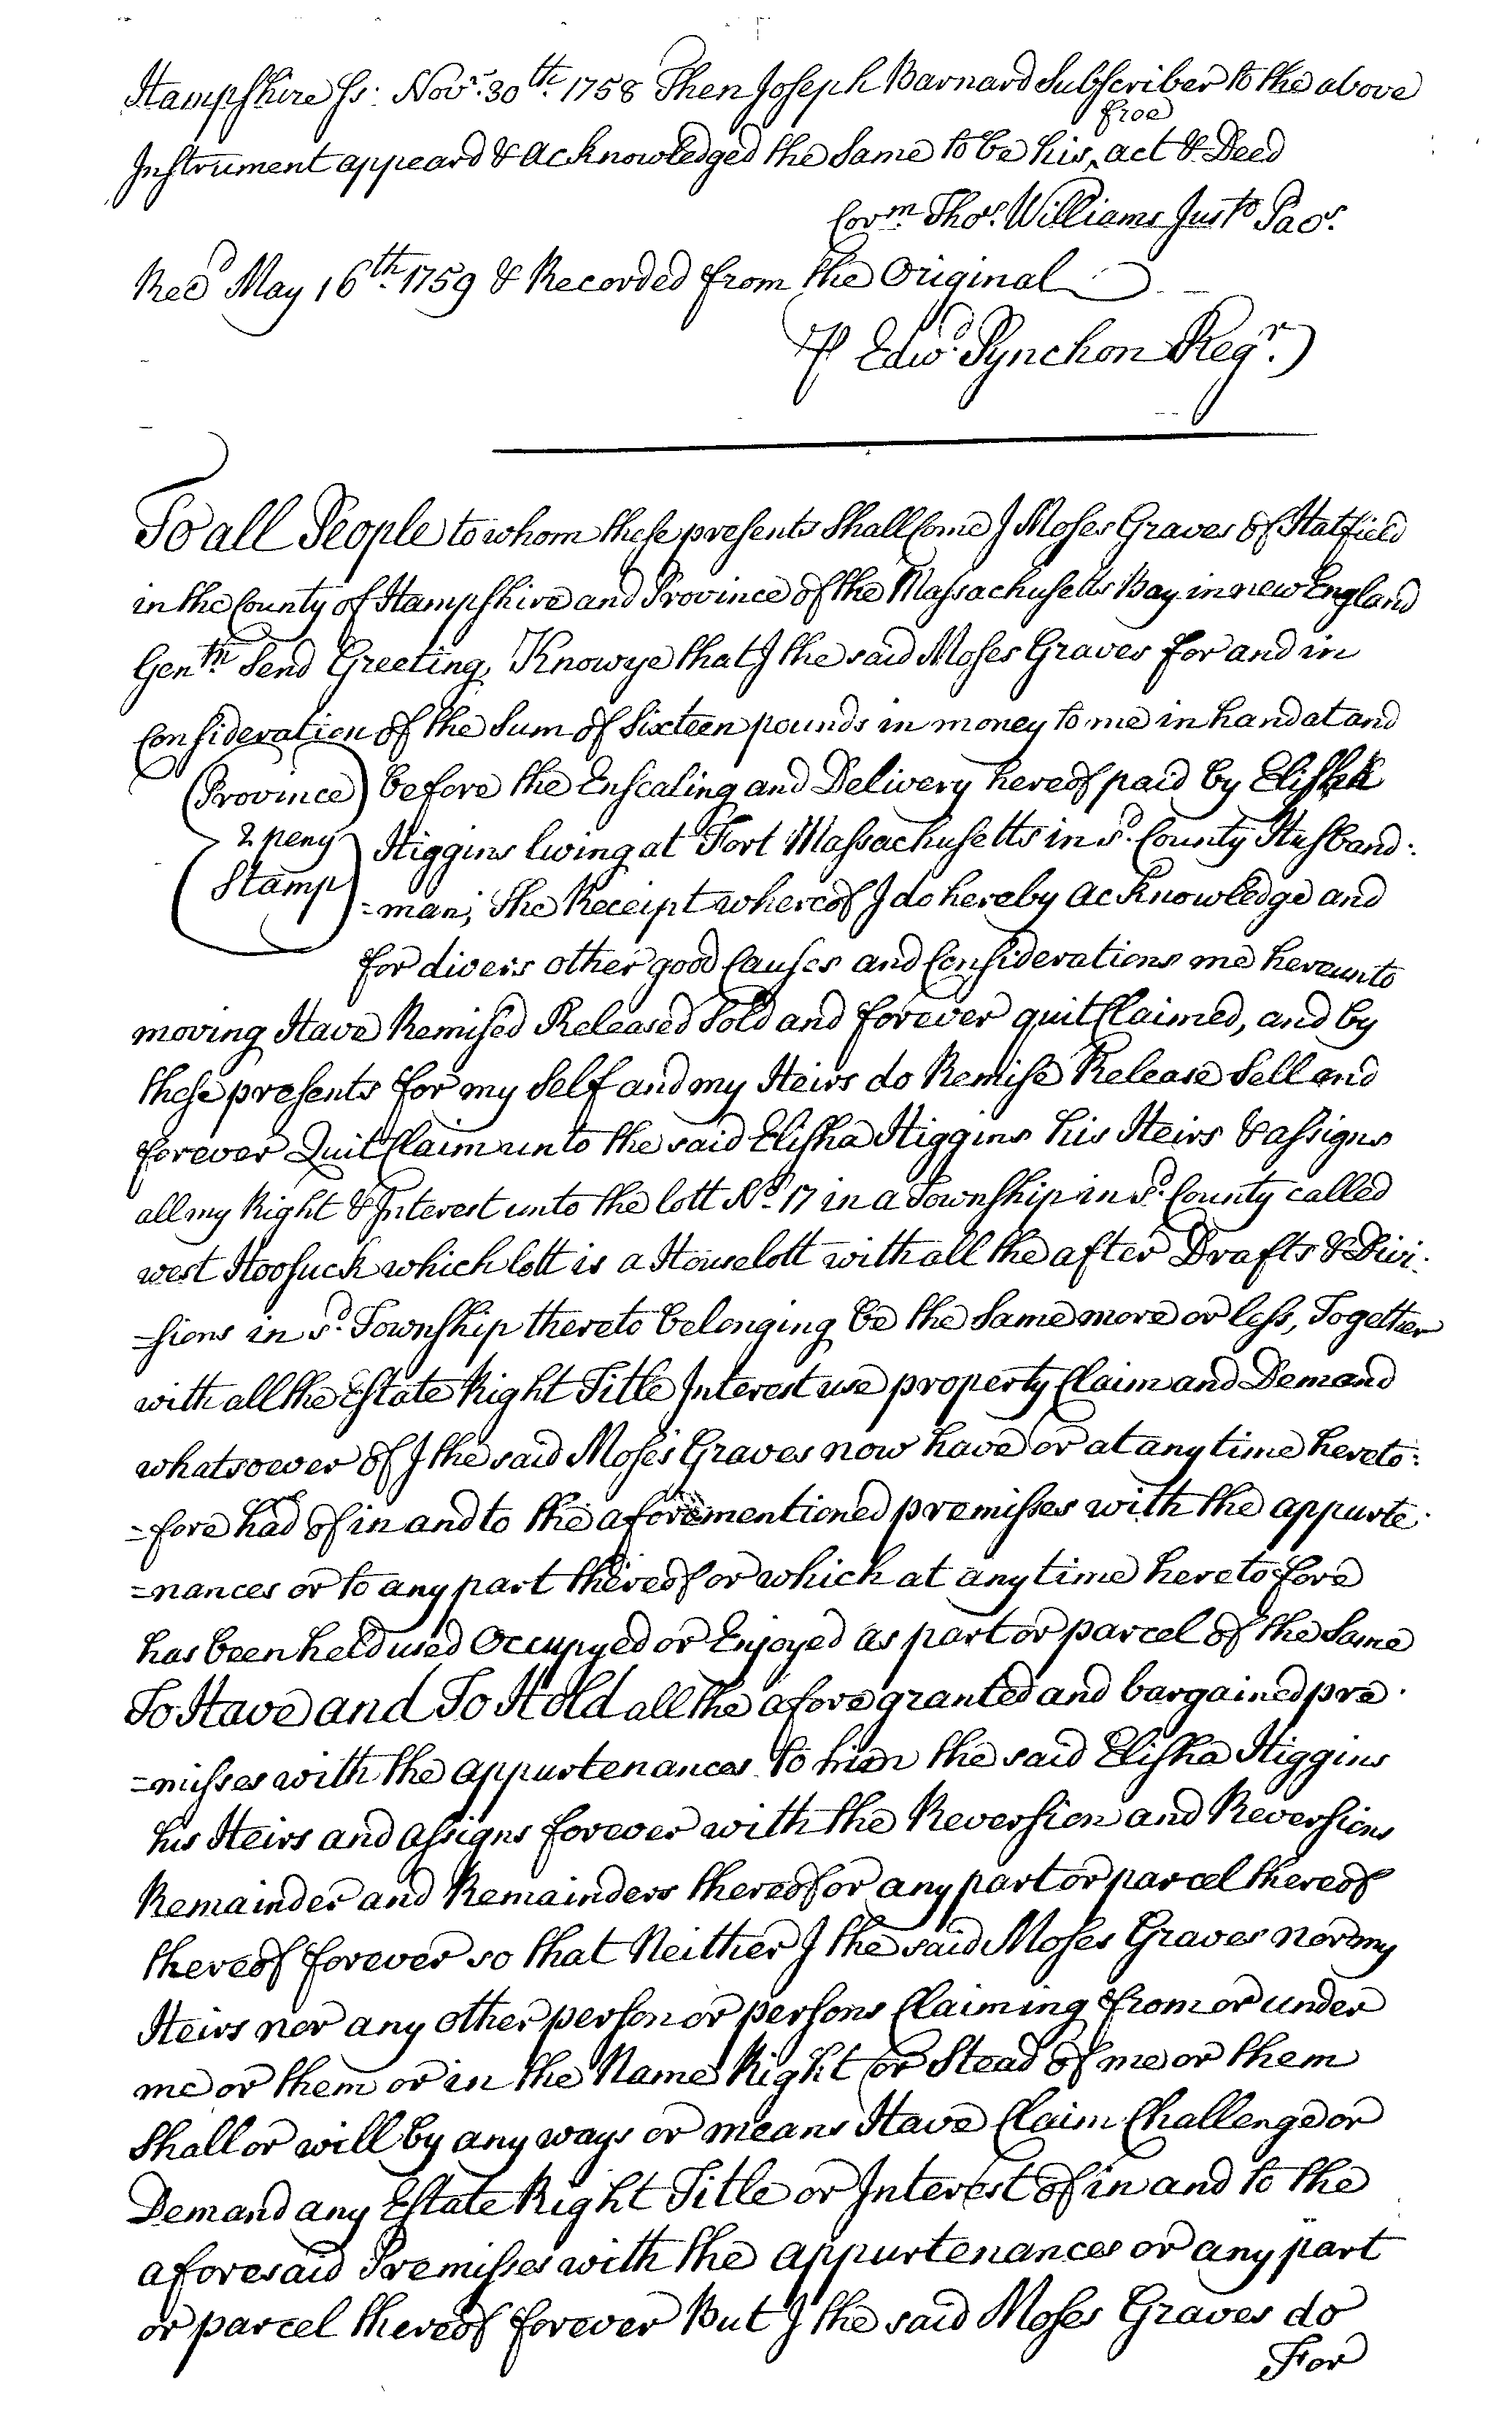 Hampshire ss: Novr. 30th. 1758 Then Joseph Barnard Subscriber to the above
free
Instrument appeard & acknowledged the Same to be his ^ act & Deed
Corm. Thos. Williams Justo Pacs.
Recd May 16th. 1759 & Recorded from the Original
P Edwd. Pynchon Regr.
To all People to whom these presents Shall Come I Moses Graves of Hatfield
in the County of Hampshire and Province of the Massachusetts Bay in new England
Gentn. Send Greeting, Know ye that I the said Moses Graves for and in
Consideration of the Sum of Sixteen pounds in money to me in hand at and
Province
2 peny
Stamp
before the Ensealing and Delivery hereof paid by Elisha
Higgins living at Fort Massachusetts in sd. County Husband-
=man; The Receipt whereof I do hereby acknowledge and
for divers other good Causes and Considerations me hereunto
moving Have Remised Released Sold and forever quit Claimed, and by
these presents for my Self and my Heirs do Remise Release Sell and
forever Quit Claim unto the said Elisha Higgins his Heirs & assigns
all my Right & Interest unto the lott No. 17 in a Township in sd. County called
west Hoosuck which lott is a House lott with all the after Drafts & Divi-
=sions in sd. Township thereto belonging be the Same more or less, Together
with all the Estate Right Title Interest use property Claim and Demand
whatsoever of I the said Moses Graves now have or at any time hereto=
=fore had of in and to the aforementioned premisses with the appurte-
=nances or to any part thereof or which at any time heretofore
has been held used Occupyed or Enjoyed as part or parcel of the Same
To Have and To Hold all the afore granted and bargained pre-
=misses with the appurtenances to him the said Elisha Higgins
his Heirs and assigns forever with the Reversion and Reversions
Remainder and Remainders thereof or any part or parcel thereof
thereof forever so that Neither I the said Moses Graves nor my
Heirs nor any other person or persons Claiming from or under
me or them or in the Name Right or Stead of me or them
Shall or will by any ways or means Have Claim Challenge or
Demand any Estate Right Title or Interest of in and to the
aforesaid Premisses with the appurtenances or any part
or parcel thereof forever But I the said Moses Graves do
For